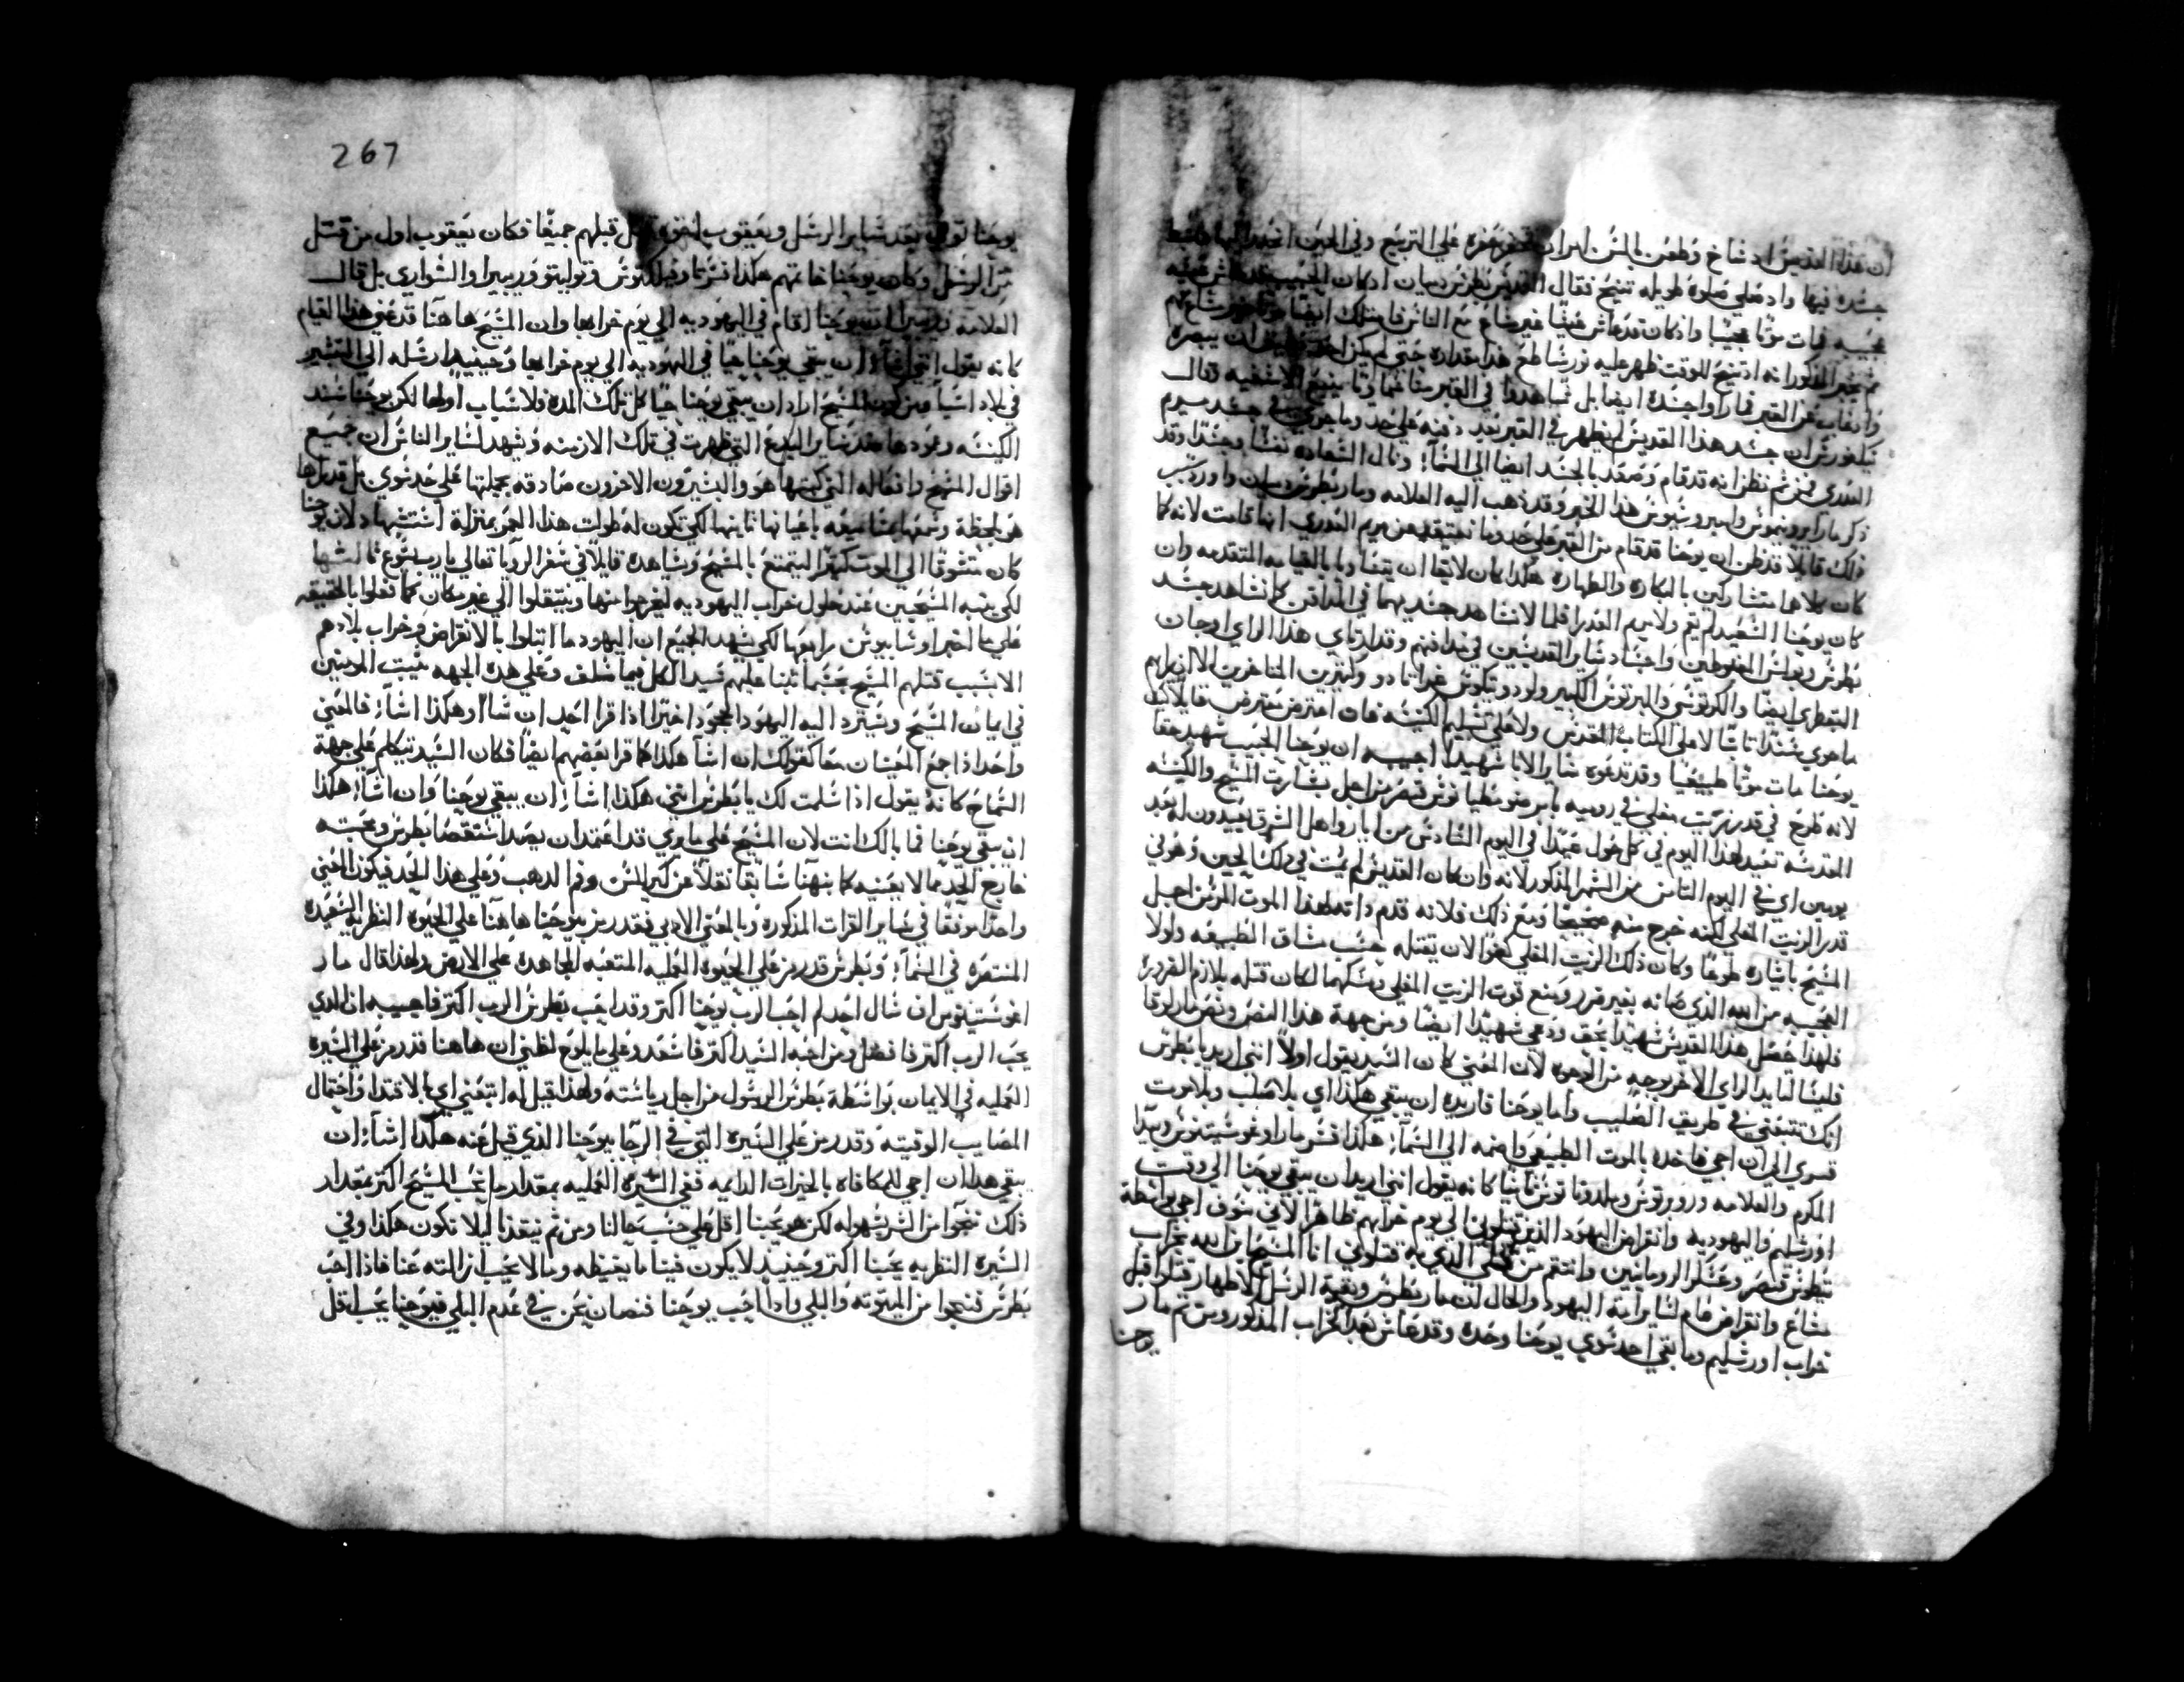 ان هذا القديس اد شاخ وطعن بالسن امر ان على التربيع وفي الحين انحدر اليها
جسده فيها واد صلي صلوه طويله تنيح فقال القديس بطرس دميان اد كان الحبيب قد عاش عيشه
عجيبه فمات موتًا عجيبًا واذ كان قد عاش عيشًا غير مشاع مع الناس فامتلك ايضًا موتًا غير مشاع ثم
ثم يخبر المذكور انه اد تنيح للوقت ظهر عليه نور ساطع هذا مقداره حتى لم يمكن احد ان يبصره
واد غاب عن القبر فما راوا جسده ايضا بل شاهدوا في القبر منًا
نيكيفورس ان جسد هذا القديس لم يظهر في القبر بعد دفنه علي حد وما جري في جسد مريم
العدري فمن ثم نظن انه قد قام وصعد بالجسد ايضا الي السمآ؛ ونال السعاده نفسًا وجسدًا وقد
ذكر مار ايرونيموس وامبروسيوس هذا الخبر وقد ذهب اليه العلامه ومار بطرس دميان
ذلك قايلاً قد نظن ان يوحنا قد قام من القبر علي حد وما نعتقد عن مريم العدري انها قامت لانه كما
كان كلاهما متشاركين بالبكاره والطهاره هكذا كان لايقا ان يتساويا بالقيامه المتقدمه وان
كان يوحنا السعيد لم يقم ولا مريم العدرا فلما لا نشاهد جسديهما في المدافن كما نشاهد جسد
بطرس وبولس المغبوطين واجساد ساير القديسين في مدافنهم وقد ارتاي هذا الراي اوجان
التيقطري ايضًا والكرتوسي والبرتوس الكبير ولودويكوس غراناد و وكثيرين المتاخرين الا ان رايهم
ما هوي سندًا تابتًا لا علي الكتاب المقدس ولا علي تسليم الكنيسه فان اعترض معترض قايلاً كيف
يوحنا مات موتًا طبيعيًا وقد تدعوه ساير الابا شهيدًا اجيب ان يوحنا الحبيب شهيد حقًا
لانه طرح في قدر زيت مغلي في روميه بامر ضوميطيانوس قيصر من اجل بشارت المسيح والكنيسه
المقدسه تعيد لهذا اليوم في كل حول عيدًا في اليوم السادس من ايار واهل الشرق يعيدون له بعد
يومين اي في اليوم التامن من الشهر المذكور لانه وان كان القديس لم يمت في ذلك الحين وهو في
قدر الزيت المغلي لكنه خرج منه صحيحًا ومع ذلك فلانه قدم ذاته لهذا الموت المر من اجل
المسيح باشاره طوعًا وكان ذلك الزيت المغلي كفوًا لان يقتله حسب مشاق الطبيعه ولولا
العجيبه من الله الذي صانه بغير ضرر ومنع قوت الزيت المغلي ومسكها لكان قتله بلازم الضروره
فلهذا حصل هذا القديس شهيدًا بحق ودعي شهيدًا ايضًا ومن جهة هذا النص ونص مار لوقا
فليسا لتايد الراي الاخر بوجه من الوجوه لان المعني كان السيد يقول اولاً انني اريد يا بطرس
انك تتبعني في طريق الصليب واما يوحنا فاريده ان يبقي هكذا اي بلا صلب وبلا موت
قسري الي ان اجي فاخده بالموت الطبيعي واضمه الي السمآ؛ هكذا فسر مار اوغوستينوس وبيدا
المكرم والعلامه دروبرتوس وملدوناتوس ثانيًا كانه يقول انني اريد ان يبقي يوحنا الي وقت
اورشليم واليهوديه وانقراض اليهود الذين يقتلوني الي يوم خرابهم ظاهرًا لاني سوف اجي بواسطة
تيطوس قيصر وعسكر الرومانيين وانتقم من فعلي الذي به قتلوني انا المسيح ابن الله بخراب
مشاع وانقراض عام لساير امة اليهود والحال لان مار بطرس وبقية الرسل الاطهار قتلوا قبل
خراب اورشليم وما بقي احد سوي يوحنا وحده وقد عاش بعد الخراب المذكور ومن ثم مار
يوحنا
267
يوحنا توفي بعد ساير الرسل ويعقوب اخوه قبلهم جميعًا فكان يعقوب اول من قتل
من الرسل وكان يوحنا خاتمهم هكذا فسر تاوفيلكتوس وتوليتو وريبيرا والسواري بل قال
العلامه ريبيرا ان يوحنا اقام في اليهوديه الي يوم خرابها وان المسيح هاهنا قد عني هذا القيام
كانه يقول انني اشآ؛ ان يبقي يوحنا حيًا في اليهوديه الي يوم خرابها وحينيد ارسله الي التبشير
في بلاد اسيا فمن كون المسيح اراد ان يبقي يوحنا حيًا كل تلك المده فلاسباب اولها لكي يوحنا يسند
الكنيسه وعمودها ضد ساير البدع التي ظهرت في تلك الازمنه ويشهد لساير الناس ان جميع
اقوال المسيح وافعاله التي كتبها هو والبشيرون الاخرون صادقه بجملتها علي حد سوي بل قد راها
هو بلحظة وسمعها بمسامعه باعيانها تانيها لكي تكون له طولت هذا العمر بمنزلة استشهاد لان يوحنا
كان متشوقًا الي الموت كثيرًا ليتمتع بالمسيح ويشاهده قايلاً في سفر الرويا تعالي يا رب يسوع تالتها
لكي ينبه المسيحيين عند حلول خراب اليهوديه ليخرجوا منها وينتقلوا الي غير مكان كما فعلوا بالحقيقه
علي ما اخبر اوسابيوس رابعها لكي يشهد الجميع ان اليهود ما ابتلوا بالانقراض وخراب بلادهم
الا بسبب قتلهم المسيح حسبما تنبا عليهم سيد الكل فيما سلف وعلي هذه الجهه يثبت المومنين
في ايمان المسيح ويسترد اليه اليهود الجحود اخيرًا اذا قرا احد ان شآ او هكذا اشآ؛ فالمعني
واحد اذ اجمع المعنيان معا كقولك ان اشآ هكذا كما قرا بعضهم ايضًا فكان السيد يتكلم علي جهة
السماح كانه يقول اذا سلمت لك يا بطرس انني هكذا اشآ؛ ان يبقي يوحنا وان اشآ؛ هكذا
ان يبقي يوحنا فما بالك انت لان المسيح علي ما يري قد اعتمد ان يصد استقصا بطرس ومحبته
خارج الحد عما لا يعنيه كما نبهنا سابقًا نقلاً عن كيرللس وفم الدهب وعلي هذا الحد فيكون المعني
واحدًا موفقًا في ساير القرات المذكوره وبالمعني الادبي فقد رمز بيوحنا هاهنا علي الحيوه النظريه السعيده
المنتصره في السمآ؛ وبطرس قد رمز علي الحيوه العمليه المتعبه المجاهده علي الارض ولهذا قال مار
اغوستينوس ان سال احد لم احب الرب يوحنا اكتر وقد احب بطرس الرب اكتر فاجيب ان الذي
يحب الرب اكتر فافضل ومن احبه السيد اكتر فاسعد وعلي ما يلوح لظني ان هاهنا قد رمز علي السيره
العمليه في الايمان بواسطة بطرس الرسول من اجل رياسته ولهذا قيل له اتبعني اي بالاقتدا واحتمال
المصايب الوقتيه وقد رمز علي السيره التي في الرجا بيوحنا الذي قيل عنه هكذا اشآ؛ ان
يبقي هذا ان اجي للمكافاه بالخيرات الدايمه ففي السيره العمليه بمقدار ما نحب المسيح اكتر بمقدار
ذلك ننجوا من الشر بسهوله لكن هو يحبنا اقل علي حسب حالنا ومن ثم ينقذنا ليلا نكون هكذا وفي
السيره النظريه يحبنا اكتر وحينيد لا يكون فينا ما يغيظه وما لا يحب ازالته عنا فاذا احب
بطرس فننجوا من الميتوته والبلي واذا احب يوحنا فنصان نحن في عدم البلي فيوحنا يحب اقل